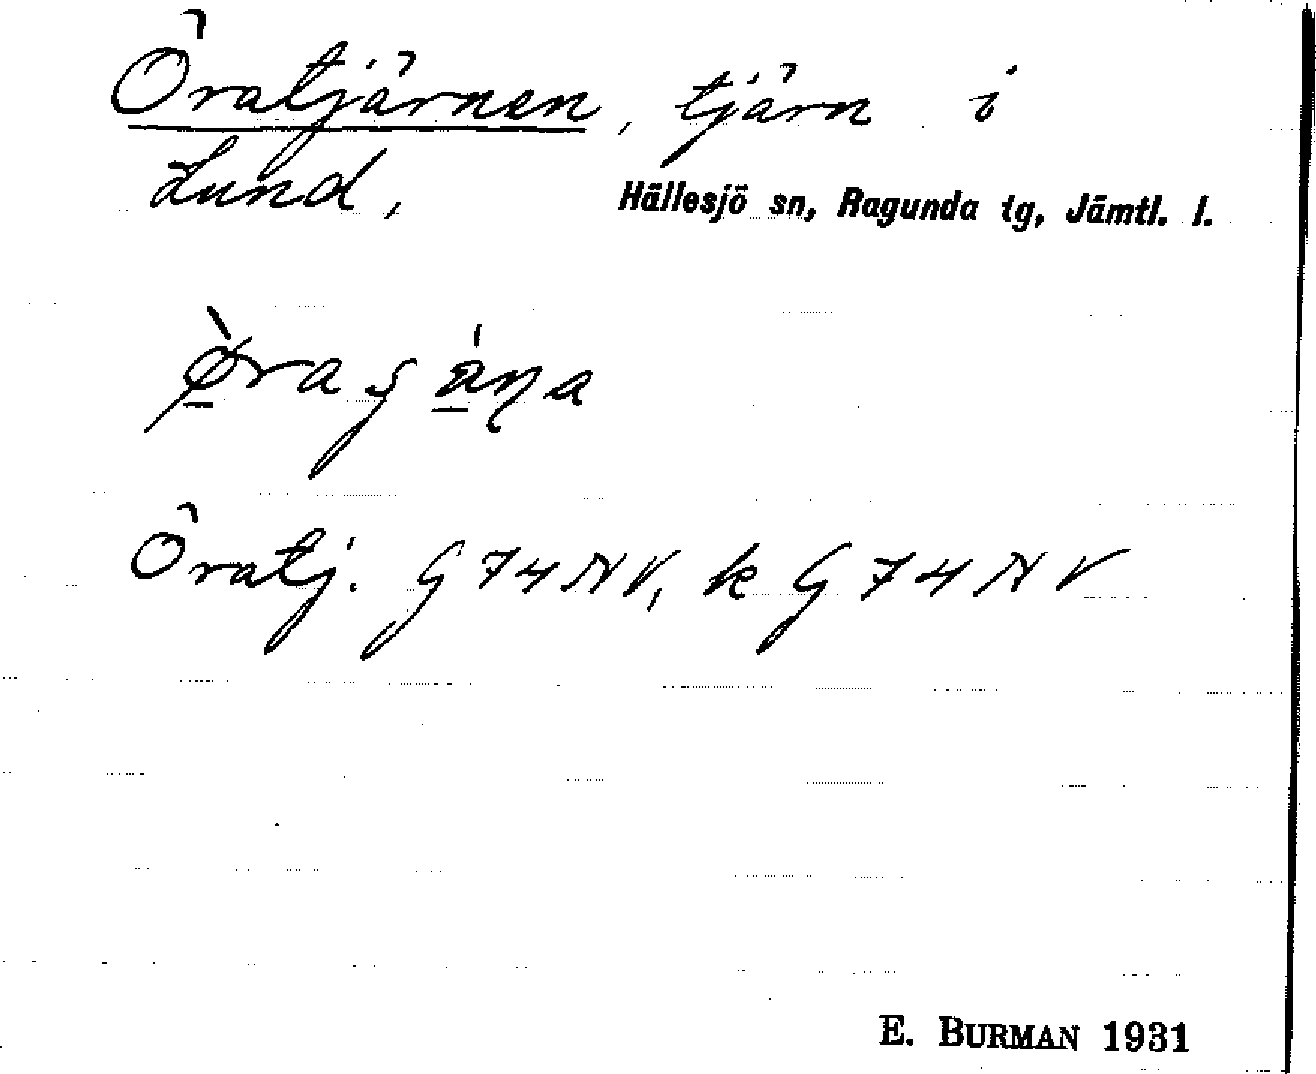 Öratjärnen, tjärn i
Lund, Hällesjö sn, Ragunda tg, Jämtl. l.
Öratj. G74NV, k G74NV
E. BURMAN 1931